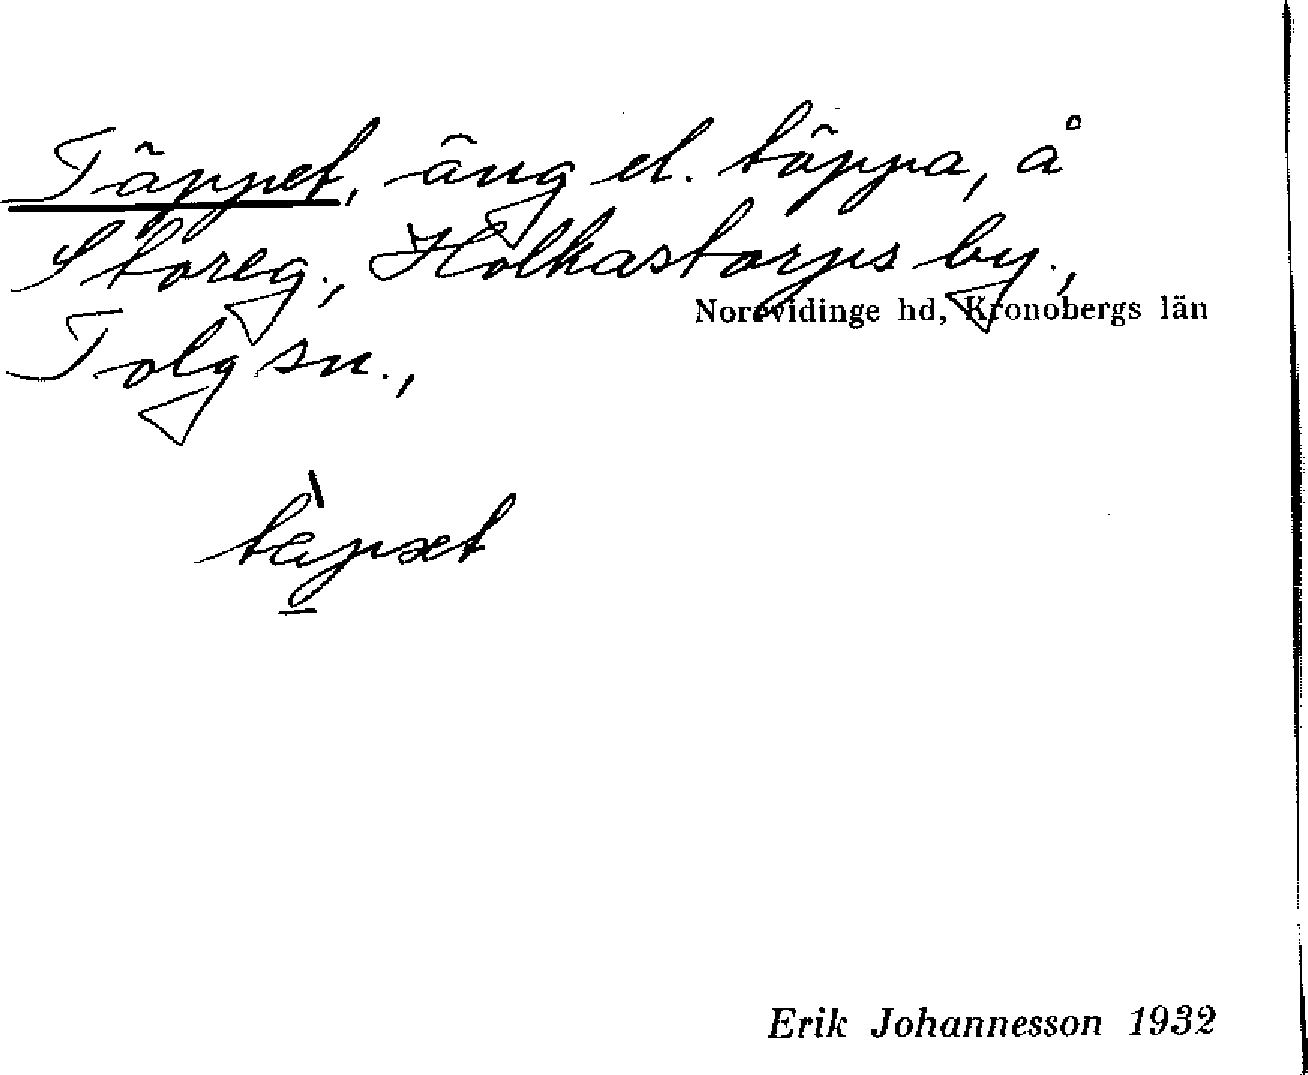 Täppet, äng el. täppa, å
Storeg., Holkastorps by.,
Norrvidinge hd, Kronobergs län
Tolg sn.,
Erik Johannesson 1932